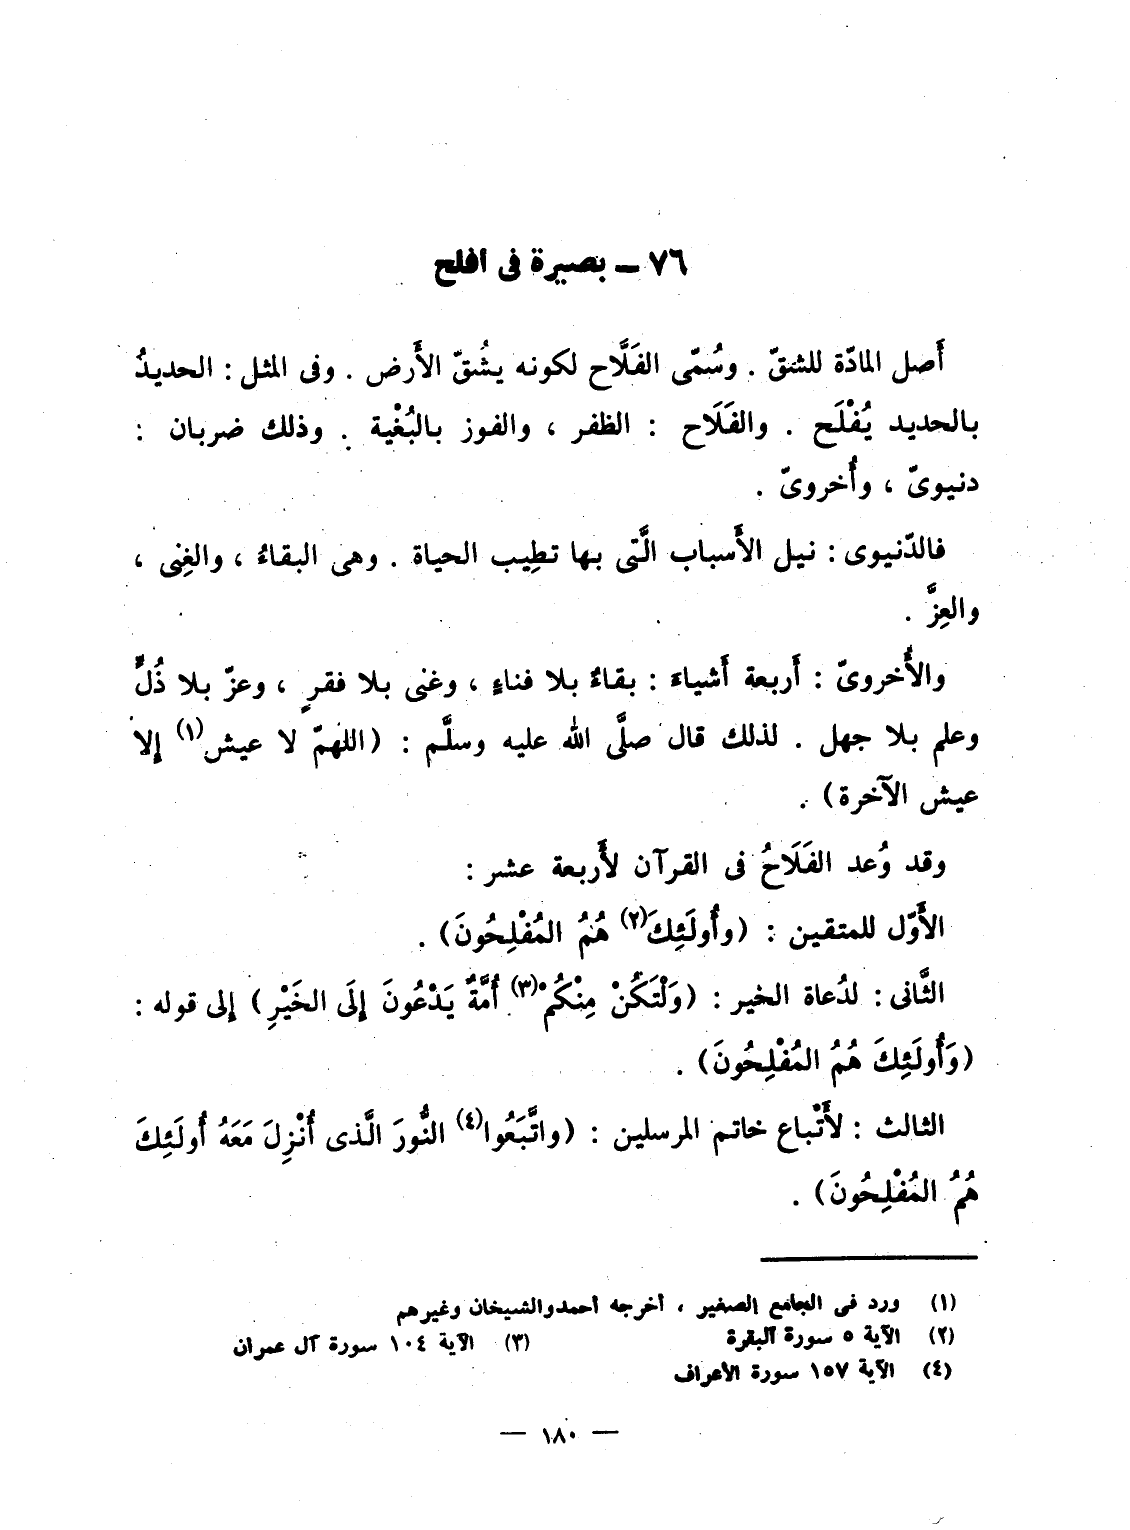 ٧٦ ــ بصيرة فى أفلح
أَصل المادّة للشقّ . وسُمّى الفَلَّاح لكونه يشُقّ الأَرض . وفى المثل : الحديدُ
بالحديد يُفْلَح . والفَلَاح : الظفر ، والفوز بالبُغْية . وذلك ضربان :
دنيوىّ ، وأُخروىّ .
فالدّنيوى : نيل الأَسباب الَّتى بها تطِيب الحياة . وهى البقاءُ ، والغِنى ،
والعِزَّ .
والأُخروىّ : أَربعة أَشياءَ : بقاءٌ بلا فناءٍ ، وغنى بلا فقرٍ ، وعزّ بلا ذُلٍّ
وعلم بلا جهل . لذلك قال صلَّى الله عليه وسلَّم : (اللهمّ لا عيش(١) إلا
عيش الآخرة) .
وقد وُعد الفَلَاحُ فى القرآن لأَربعة عشر :
الأَوّل للمتقين : (وأُولَئِكَ(٢) هُمُ المُفْلِحُونَ) .
الثَّانى : لدُعاة الخير : (وَلْتَكُنْ مِنْكُمْ(٣) أُمَّةٌ يَدْعُونَ إِلَى الخَيْرِ) إلى قوله :
(وَأُولَئِكَ هُمُ المُفْلِحُونَ) .
الثالث : لأَتْباع خاتم المرسلين : (واتَّبَعُوا(٤) النُّورَ الَّذى أُنْزِلَ مَعَهُ أُولَئِكَ
هُمُ المُفْلِحُونَ) .
(١) ورد فى الجامع الصغير ، أخرجه أحمد والشيخان وغيرهم
(٢) الآية ٥ سورة البقرة (٣) الآية ١٠٤ سورة آل عمران
(٤) الآية ١٥٧ سورة الأعراف
— ١٨٠ —